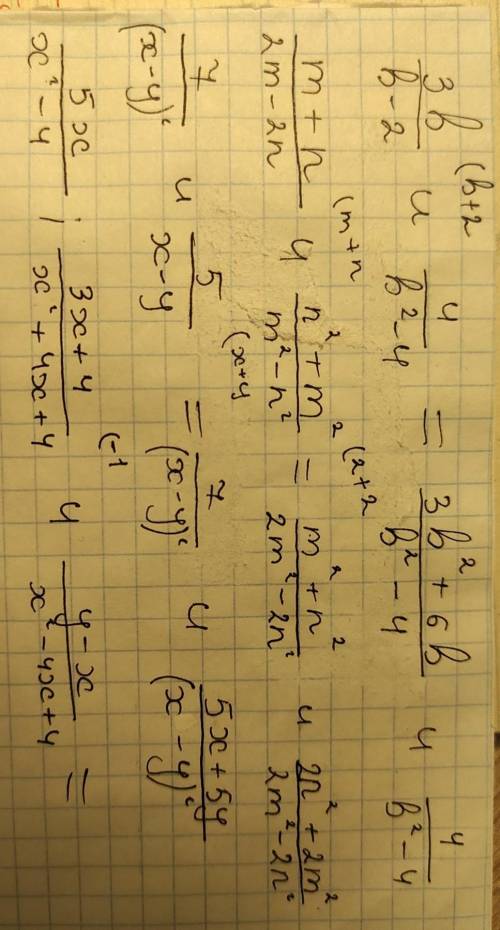 3b/(b-2) (b+2 и 4/(b²-4) = (3b²+6b)/(b²-4) и 4/(b²-4)
(m+n)/(2m-2n) (m+n и (n²+m²)/(m²-n²) (2+2 = (m²+n²)/(2m²-2n²) и (2n²+2m²)/(2m²-2n²)
7/(x-y)² и 5/(x-y) (x+y = 7/(x-y)² и (5x+5y)/(x-y)²
5x/(x²-4) ; (3x+4)/(x²+4x+4) (-1 и (y-x)/(x²-4x+4) =